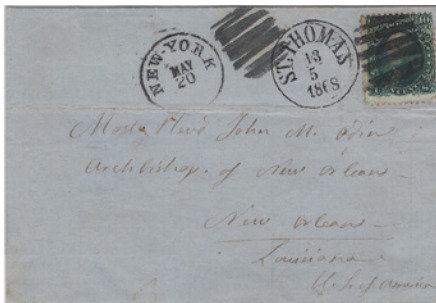 NEW-YORK
MAY
20
ST. THOMAS
13
5
1868
10
Most Rev'd John M. Odin
Archbishop of New Orleans
New Orleans
Louisiana
U.S. of America